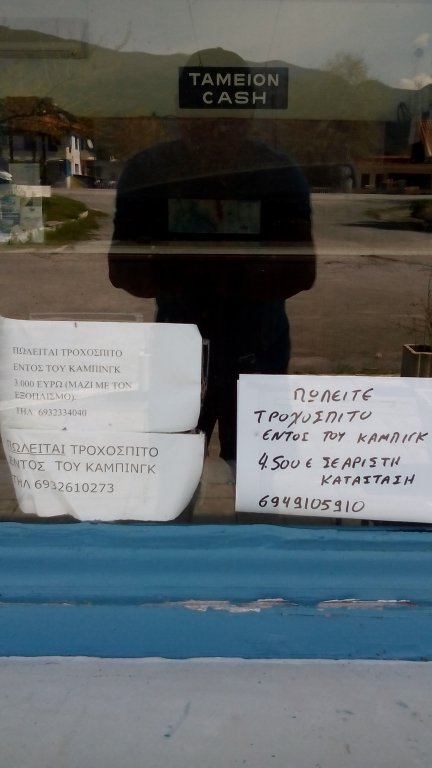 ΤΑΜΕΙΟΝ
CASH
ΠΩΛΕΙΤΑΙ ΤΡΟΧΟΣΠΙΤΟ
ΕΝΤΟΣ ΤΟΥ ΚΑΜΠΙΝΓΚ
3.000 ΕΥΡΩ (ΜΑΖΙ ΜΕ ΤΟΝ
ΕΞΟΠΛΙΣΜΟ).
ΤΗΛ 6932334040
ΠΩΛΕΙΤΑΙ ΤΡΟΧΟΣΠΙΤΟ
ΕΝΤΟΣ ΤΟΥ ΚΑΜΠΙΝΓΚ
ΤΗΛ 6932610273
ΠΩΛΕΙΤΕ
ΤΡΟΧΟΣΠΙΤΟ
ΕΝΤΟΣ ΤΟΥ ΚΑΜΠΙΓΚ
4.500 € ΣΕ ΑΡΙΣΤΗ
ΚΑΤΑΣΤΑΣΗ
6949105910